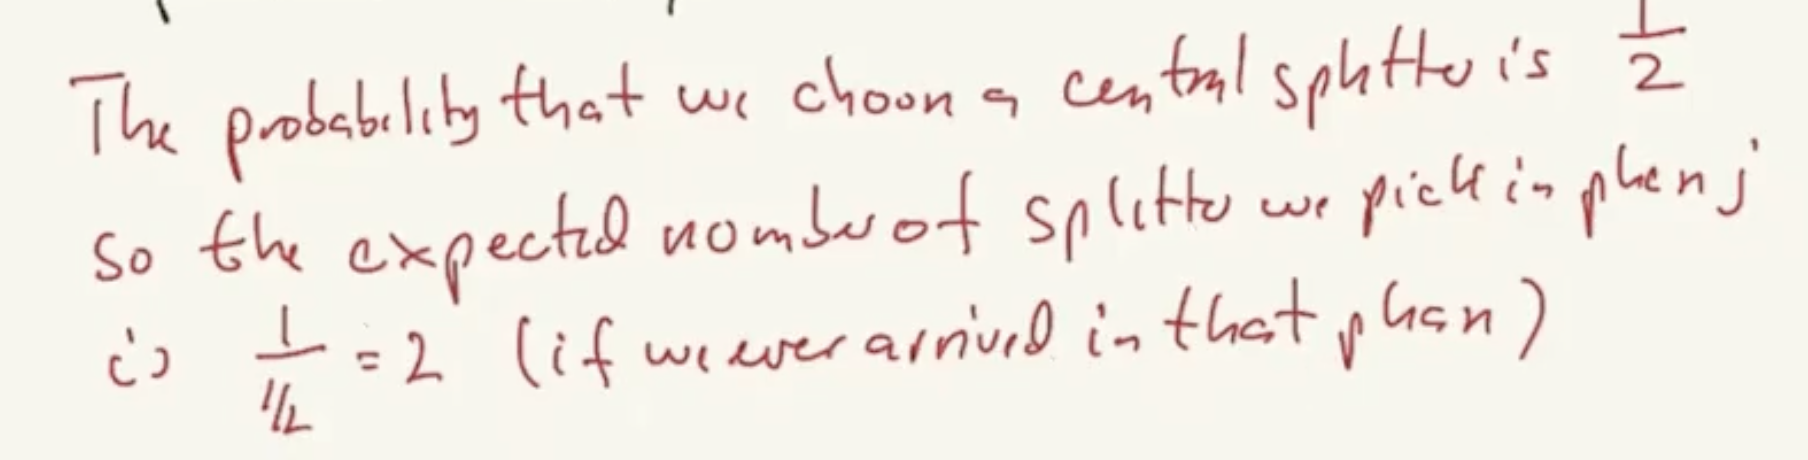 The probability that we choose a central splitter is 1/2
so the expected number of splitter we pick in phase j
is 1/(1/2) = 2 (if we ever arrived in that phase)